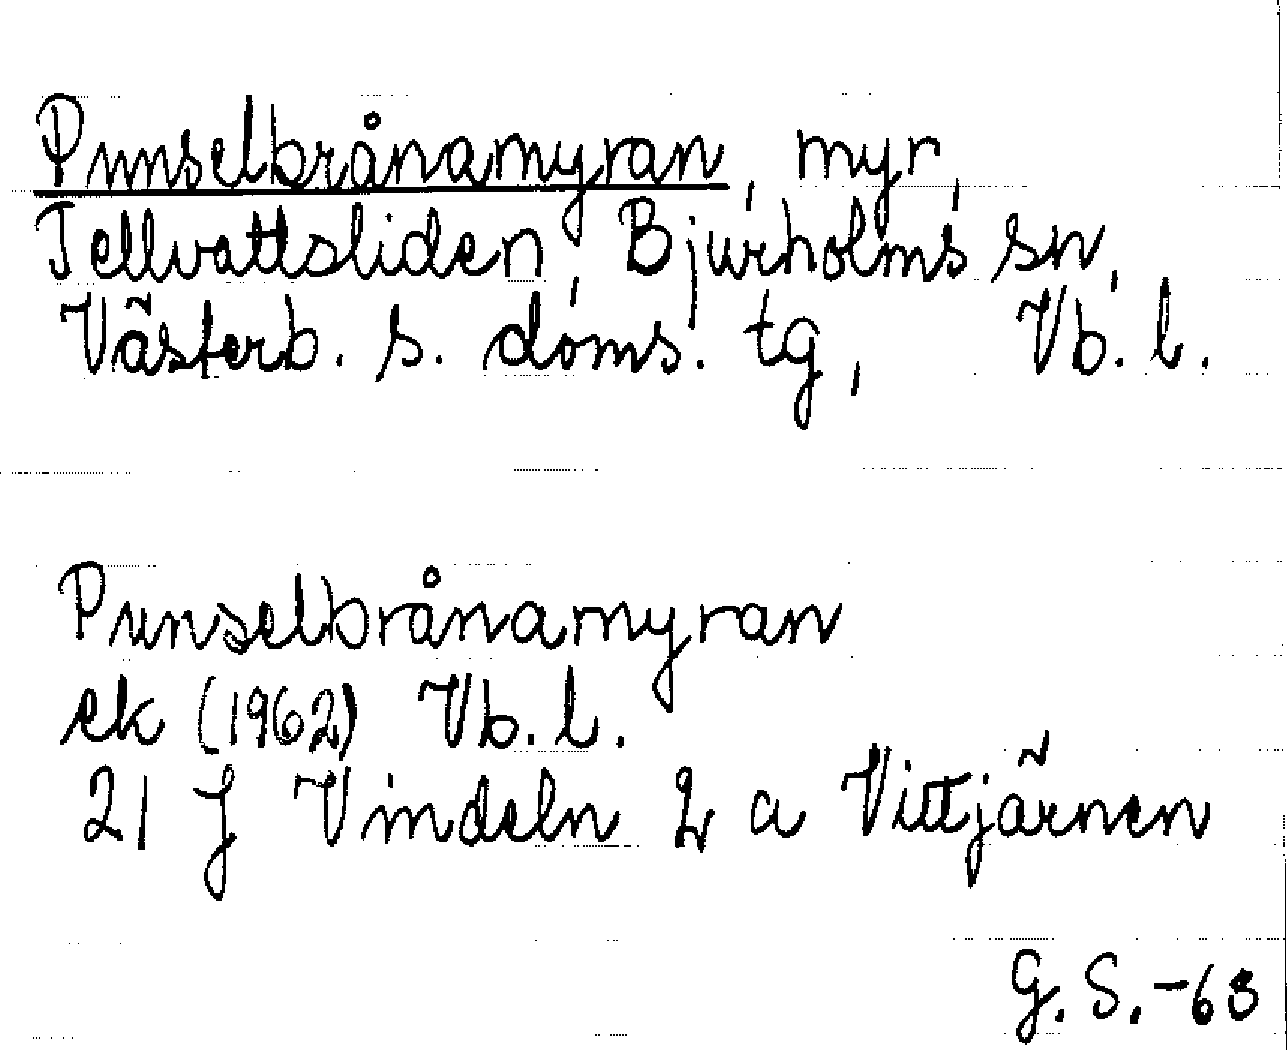 Punselbrånamyran, myr,
Tellvattsliden, Bjurholms sn,
Västerb. s. doms. tg, Vb. l.
Punselbrånamyran
ek (1962) Vb. l.
21 J Vindeln 2 a Vittjärnen
G. S. -68